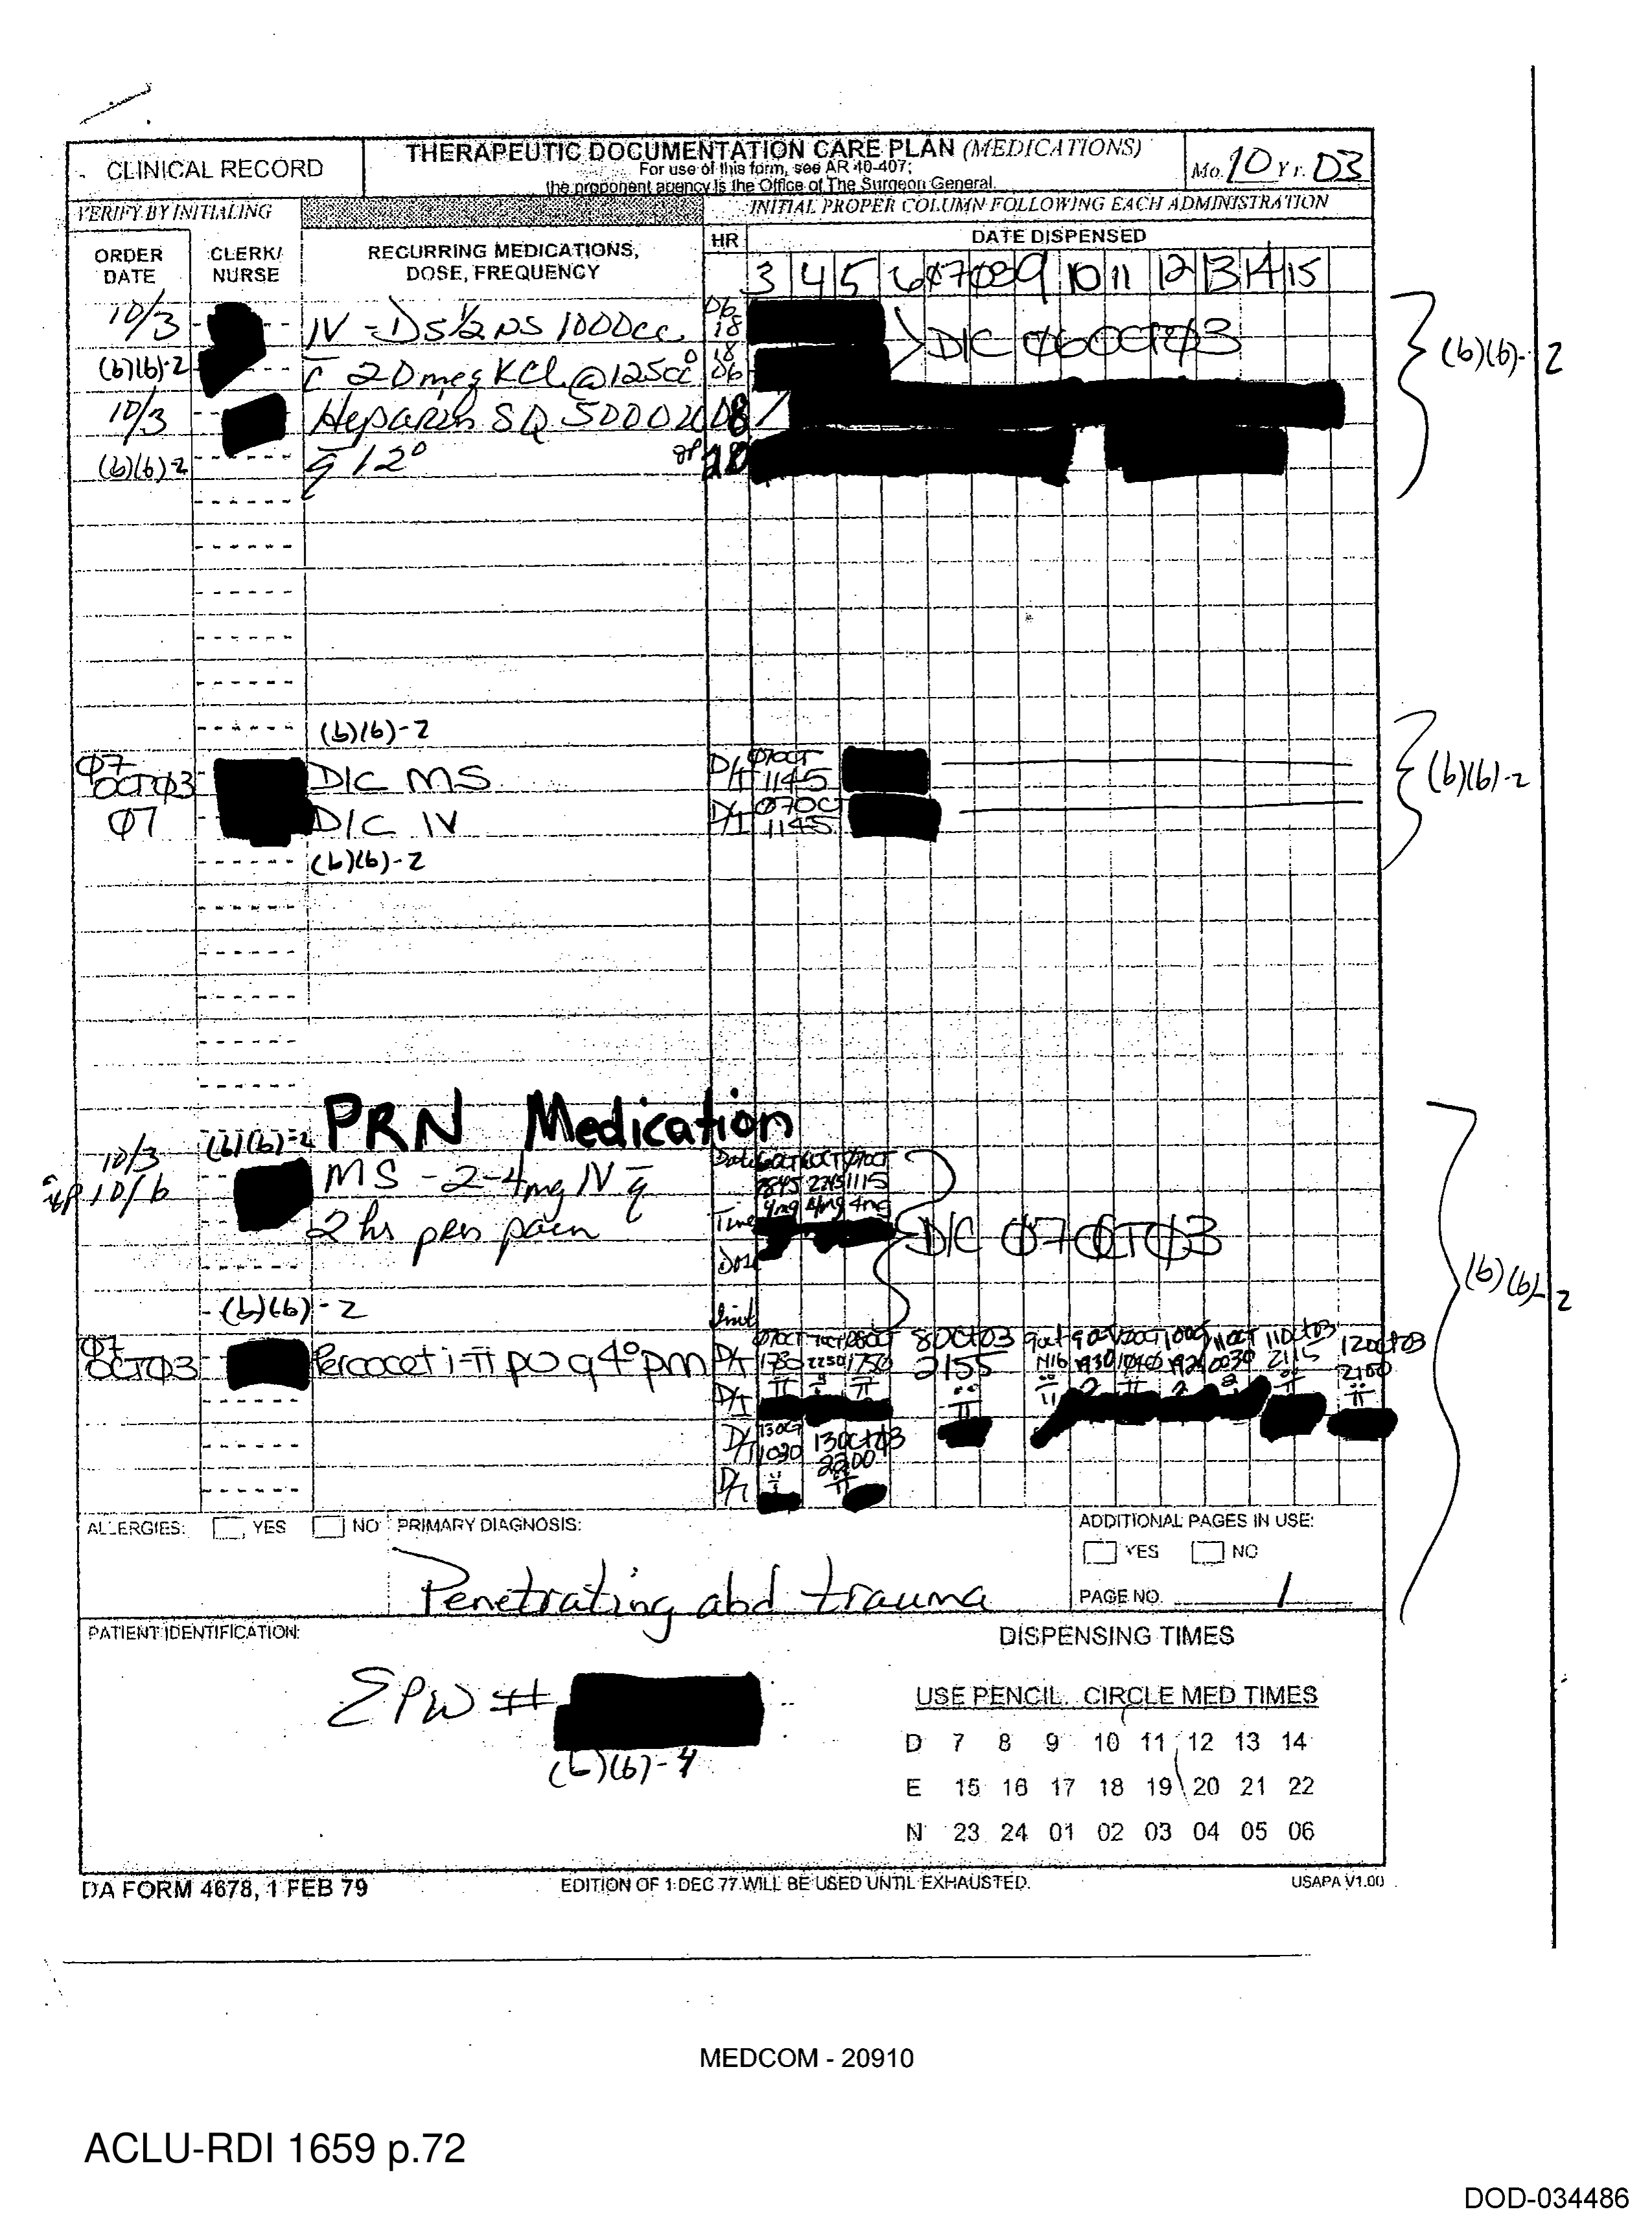 CLINICAL RECORD
THERAPEUTIC DOCUMENTATION CARE PLAN (MEDICATIONS)
For use of this form, see AR 40-407;
the proponent agency is the Office of The Surgeon General.
Mo. 10 Yr. 03
VERIFY BY INITIALING
INITIAL PROPER COLUMN FOLLOWING EACH ADMINISTRATION
ORDER DATE
CLERK/ NURSE
RECURRING MEDICATIONS, DOSE, FREQUENCY
HR
DATE DISPENSED
3 4 5 6 07 08 9 10 11 12 13 14 15
10/3 IV - D5 1/2 NS 1000cc 06 18
D/C 06OCT03
(b)(6)-2 c̄ 20 meq KCl @ 125cc° 18 06
(b)(6)-2
10/3 Heparin SQ 5000u 08
(b)(6)-2 q̄ 12° 20
(b)(6)-2
07 OCT03 D/C MS D/T 07OCT 1145
07 D/C IV D/T 07OCT 1145
(b)(6)-2
(b)(6)-2
PRN Medication
10/3 (b)(6)-2
10/6 MS - 2-4mg IV q̄
2 hr prn pain
Date 6OCT 6OCT 07OCT
1845 2245 1115
4mg 4mg 4mg
Time
Dose
Init
D/C 07OCT03
(b)(6)-2
(b)(6)-2
07 OCT03 Percocet i-ii po q4° prn
D/T 07OCT 7OCT 08OCT 8Oct03 9oct 9OCT 10OCT 10Oct 11OCT 11Oct03 12Oct03
1730 2250 1750 2155 1416 1930 1040 192 0030 2115 2100
D/T
D/T 13OCT 1030 13Oct03 2200
D/T
ALLERGIES: YES NO PRIMARY DIAGNOSIS:
Penetrating abd trauma
ADDITIONAL PAGES IN USE:
YES NO
PAGE NO. 1
PATIENT IDENTIFICATION:
EPW #
(b)(6)-4
DISPENSING TIMES
USE PENCIL. CIRCLE MED TIMES
D 7 8 9 10 11 12 13 14
E 15 16 17 18 19 20 21 22
N 23 24 01 02 03 04 05 06
DA FORM 4678, 1 FEB 79
EDITION OF 1 DEC 77 WILL BE USED UNTIL EXHAUSTED.
USAPA V1.00
MEDCOM - 20910
ACLU-RDI 1659 p.72
DOD-034486